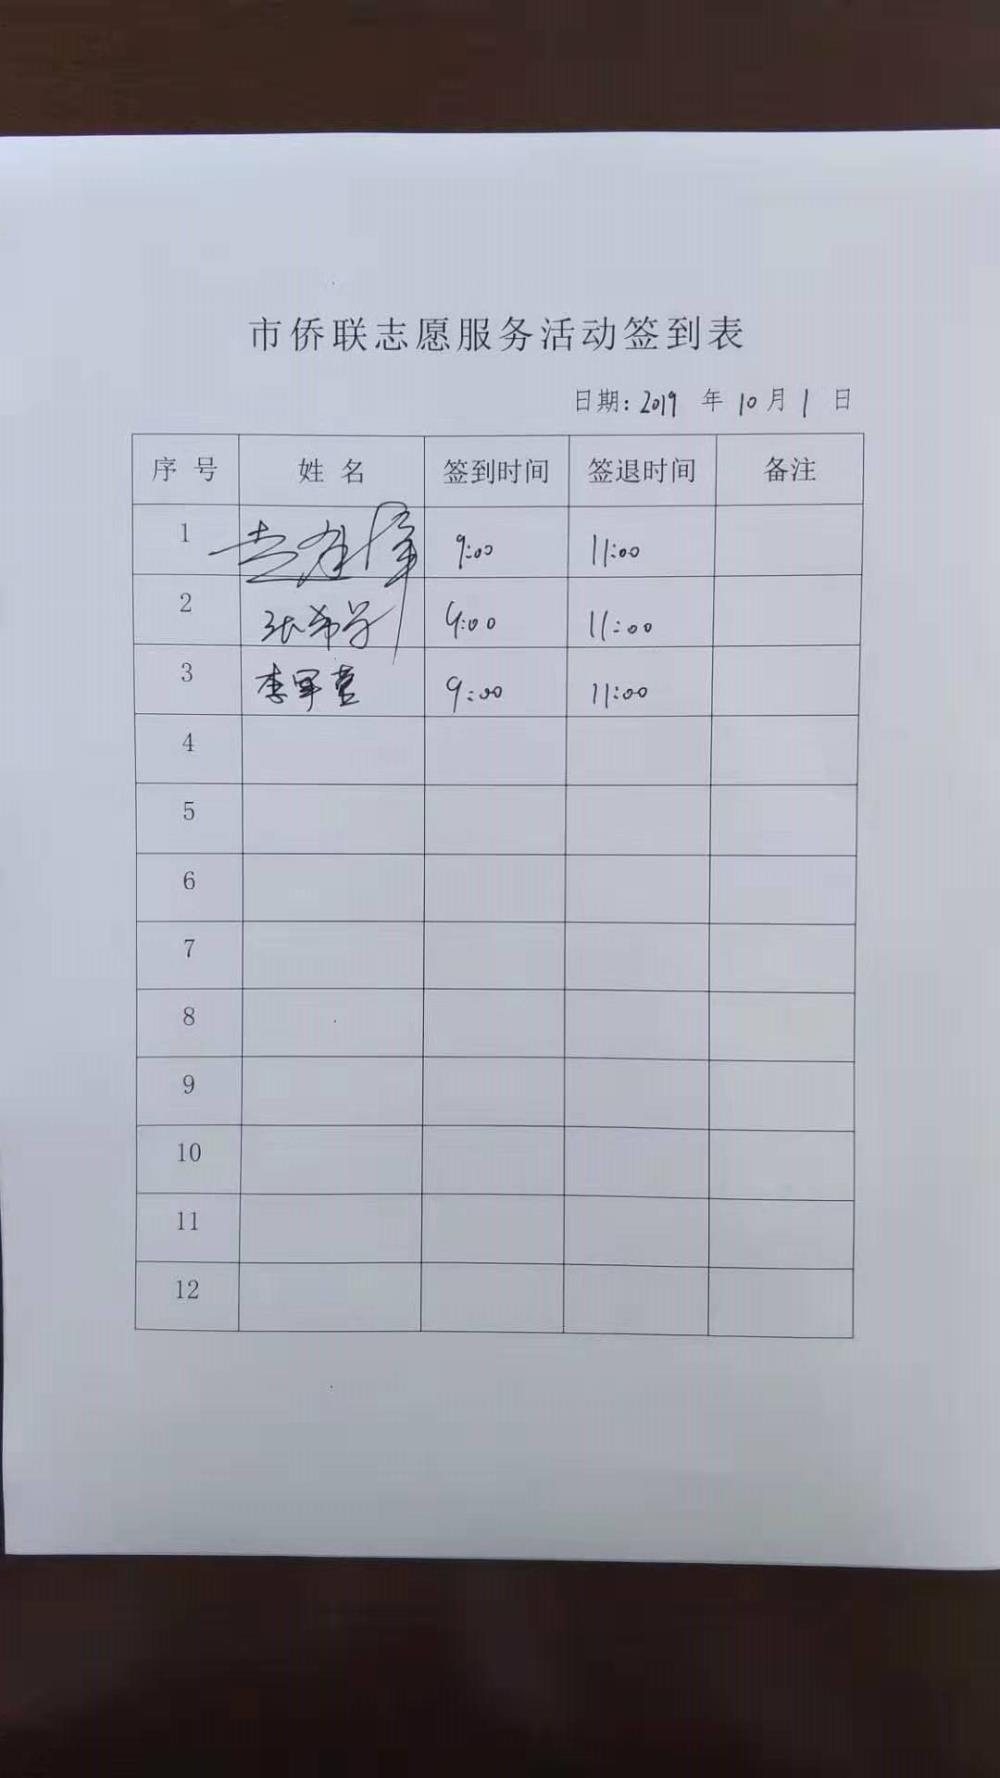 市侨联志愿服务活动签到表
日期: 2019 年 10 月 1 日
序 号 姓 名 签到时间 签退时间 备注
1 9:00 11:00
2 张希学 9:00 11:00
3 李军营 9:00 11:00
4
5
6
7
8
9
10
11
12